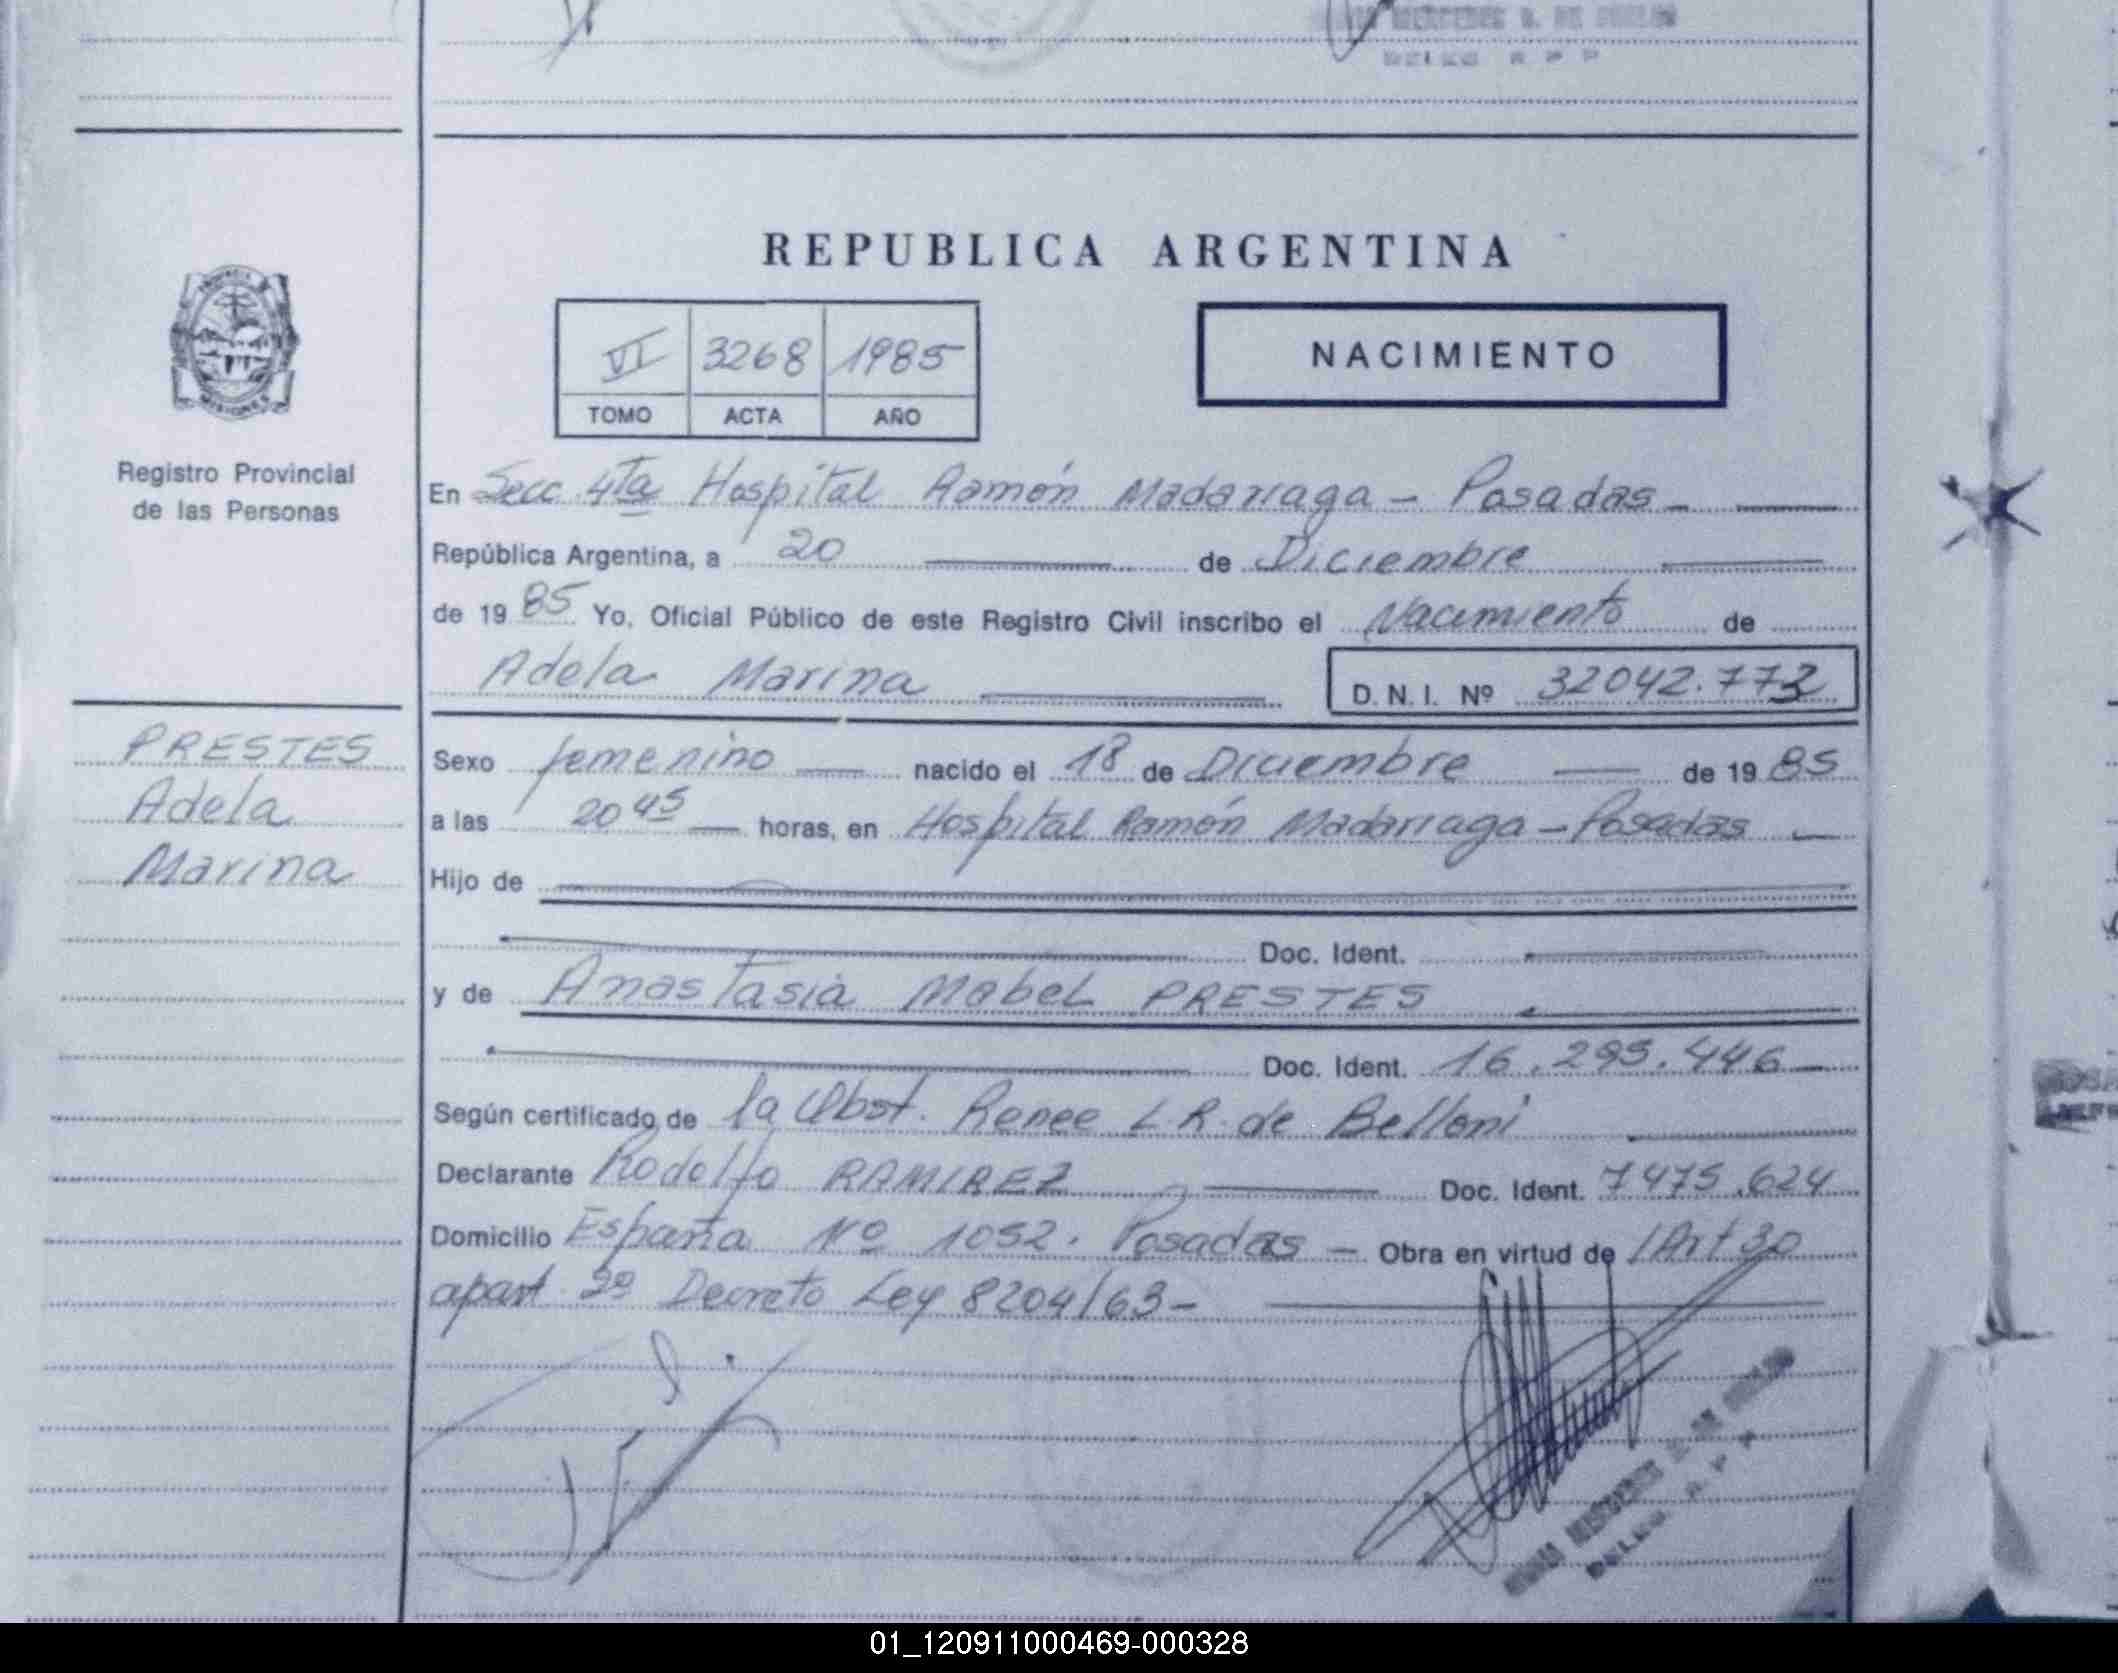 REPUBLICA ARGENTINA
VI 3268 1985
TOMO ACTA AÑO
NACIMIENTO
PROVINCIA
MISIONES
Registro Provincial
de las Personas
PRESTES
Adela
Marina
En Secc 4ta Hospital Ramón Madariaga - Posadas -
República Argentina, a 20 de Diciembre
de 1985 Yo, Oficial Público de este Registro Civil inscribo el Nacimiento de
Adela Marina D.N.I. Nº 32042.773
Sexo femenino nacido el 18 de Diciembre de 1985
a las 20 45 horas, en Hospital Ramón Madariaga - Posadas
Hijo de
Doc. Ident.
y de Anastasia Mabel PRESTES
Doc. Ident. 16.295.446
Según certificado de la Obst. Renee L.R. de Belloni
Declarante Rodolfo RAMIREZ Doc. Ident. 7475.624
Domicilio España Nº 1052. Posadas - Obra en virtud de /Art 30
apart 2º Decreto Ley 8204/63-
01_120911000469-000328